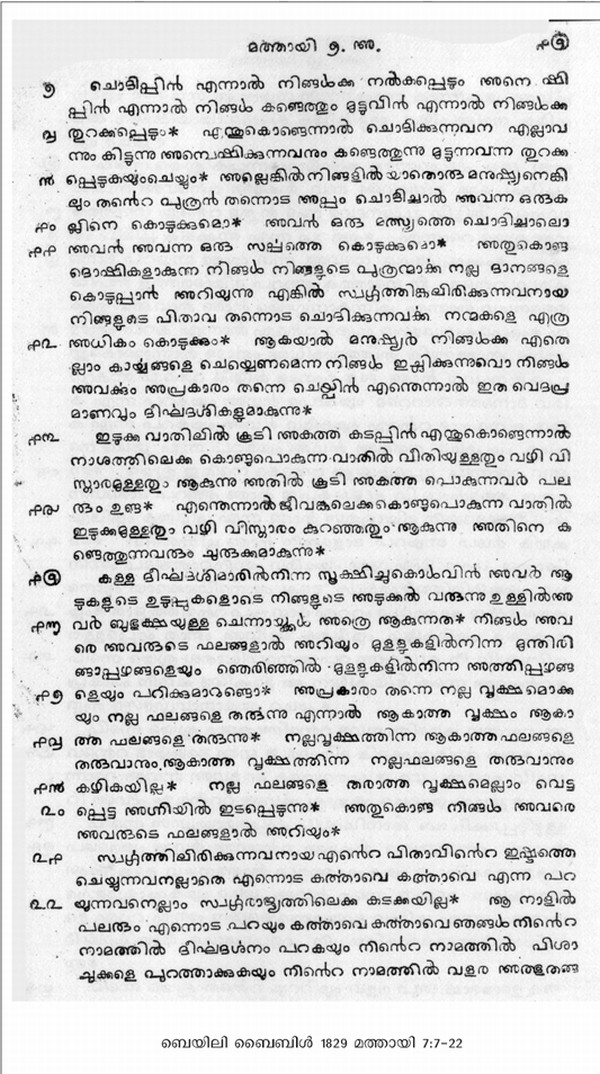 മത്തായി ൭. അ. ൧൫
൭ ചൊദിപ്പിൻ എന്നാൽ നിങ്ങൾക്ക നൽകപ്പെടും അന്വെഷി
പ്പിൻ എന്നാൽ നിങ്ങൾ കണ്ടെത്തും മുട്ടുവിൻ എന്നാൽ നിങ്ങൾക്ക
൮ തുറക്കപ്പെടും* എന്തുകൊണ്ടെന്നാൽ ചൊദിക്കുന്നവന എല്ലാവ
ന്നും കിട്ടുന്നു അന്വെഷിക്കുന്നവനും കണ്ടെത്തുന്നു മുട്ടുന്നവന്ന തുറക്ക
൯ പ്പെടുകയുംചെയ്യും* അല്ലെങ്കിൽ നിങ്ങളിൽ യാതൊരു മനുഷ്യനെങ്കി
ലും തൻെറ പുത്രൻ തന്നൊട അപ്പം ചൊദിച്ചാൽ അവന്ന ഒരുക
൰ ല്ലിനെ കൊടുക്കുമൊ* അവൻ ഒരു മത്സ്യത്തെ ചൊദിച്ചാലൊ
൰൧ അവൻ അവന്ന ഒരു സൎപ്പത്തെ കൊടുക്കുമൊ* അതുകൊണ്ട
ദൊഷികളാകുന്ന നിങ്ങൾ നിങ്ങളുടെ പുത്രന്മാൎക്ക നല്ല ദാനങ്ങളെ
കൊടുപ്പാൻ അറിയുന്നു എങ്കിൽ സ്വൎഗ്ഗത്തിങ്കലിരിക്കുന്നവനായ
നിങ്ങളുടെ പിതാവ തന്നൊട ചൊദിക്കുന്നവൎക്ക നന്മകളെ എത്ര
൰൨ അധികം കൊടുക്കും* ആകയാൽ മനുഷ്യർ നിങ്ങൾക്ക എതെ
ല്ലാം കാൎയ്യങ്ങളെ ചെയ്യെണമെന്ന നിങ്ങൾ ഇച്ശിക്കുന്നുവൊ നിങ്ങൾ
അവൎക്കും അപ്രകാരം തന്നെ ചെയ്വിൻ എന്തെന്നാൽ ഇത വെദപ്ര
മാണവും ദീൎഘദൎശികളുമാകുന്നു*
൰൩ ഇടുക്ക വാതിലിൽ കൂടി അകത്ത കടപ്പിൻ എന്തുകൊണ്ടെന്നാൽ
നാശത്തിലെക്ക കൊണ്ടുപൊകുന്ന വാതിൽ വീതിയുള്ളതും വഴി വി
സ്താരമുള്ളതും ആകുന്നു അതിൽ കൂടി അകത്ത പൊകുന്നവർ പല
൰൪ രും ഉണ്ട* എന്തെന്നാൽ ജീവങ്കലെക്ക കൊണ്ടുപൊകുന്ന വാതിൽ
ഇടുക്കമുള്ളതും വഴി വിസ്താരം കുറഞ്ഞതും ആകുന്നു അതിനെ ക
ണ്ടെത്തുന്നവരും ചുരുക്കമാകുന്നു*
൰൫ കള്ള ദീൎഘദൎശിമാരിൽനിന്ന സൂക്ഷിച്ചുകൊൾവിൻ അവർ ആ
ടുകളുടെ ഉടുപ്പുകളൊടെ നിങ്ങളുടെ അടുക്കൽ വരുന്നു ഉള്ളിൽഅ
൰൬ വർ ബുഭുക്ഷയുള്ള ചെന്നായ്ക്കൾ അത്രെ ആകുന്നത* നിങ്ങൾ അവ
രെ അവരുടെ ഫലങ്ങളാൽ അറിയും മുള്ളുകളിൽനിന്ന മുന്തിരി
ങ്ങാപ്പഴങ്ങളെയും ഞെരിഞ്ഞിൽ മുള്ളുകളിൽനിന്ന അത്തിപ്പഴങ്ങ
൰൭ ളെയും പറിക്കുമാറുണ്ടൊ* അപ്രകാരം തന്നെ നല്ല വൃക്ഷമൊക്ക
യും നല്ല ഫലങ്ങളെ തരുന്നു എന്നാൽ ആകാത്ത വൃക്ഷം ആകാ
൰൮ ത്ത ഫലങ്ങളെ തരുന്നു* നല്ലവൃക്ഷത്തിന്ന ആകാത്തഫലങ്ങളെ
തരുവാനും ആകാത്ത വൃക്ഷത്തിന്ന നല്ലഫലങ്ങളെ തരുവാനും
൰൯ കഴികയില്ല* നല്ല ഫലങ്ങളെ തരാത്ത വൃക്ഷമെല്ലാം വെട്ട
൨൦ പ്പെട്ട അഗ്നിയിൽ ഇടപ്പെടുന്നു* അതുകൊണ്ട നിങ്ങൾ അവരെ
അവരുടെ ഫലങ്ങളാൽ അറിയും*
൨൧ സ്വൎഗ്ഗത്തിലിരിക്കുന്നവനായ എൻെറ പിതാവിൻെറ ഇഷ്ടത്തെ
ചെയ്യുന്നവനല്ലാതെ എന്നൊട കൎത്താവെ കൎത്താവെ എന്ന പറ
൨൨ യുന്നവനെല്ലാം സ്വൎഗ്ഗരാജ്യത്തിലെക്ക കടക്കയില്ല* ആ നാളിൽ
പലരും എന്നൊട പറയും കൎത്താവെ കൎത്താവെ ഞങ്ങൾ നിൻെറ
നാമത്തിൽ ദീൎഘദൎശനം പറകയും നിൻെറ നാമത്തിൽ പിശാ
ചുക്കളെ പുറത്താക്കുകയും നിൻെറ നാമത്തിൽ വളര അത്ഭുതങ്ങ
ബെയിലി ബൈബിൾ 1829 മത്തായി 7:7-22